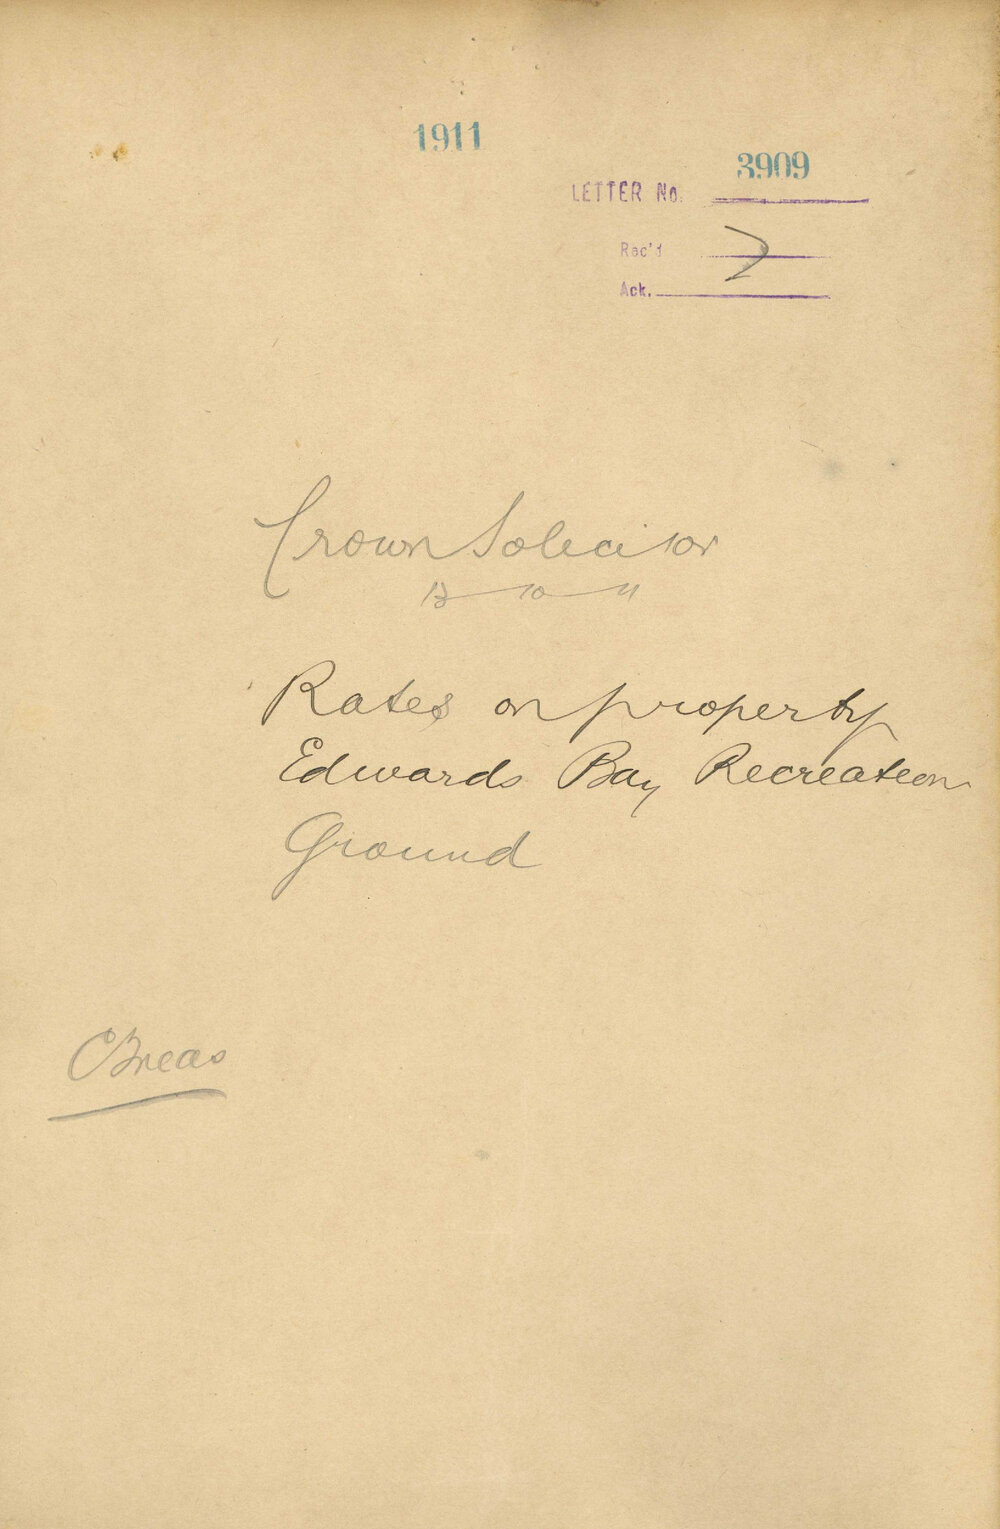 1911
3909
LETTER No.
Rec'd
Ack.
Crown Solicitor
13 10 11
Rates on property
Edwards Bay Recreation
Ground